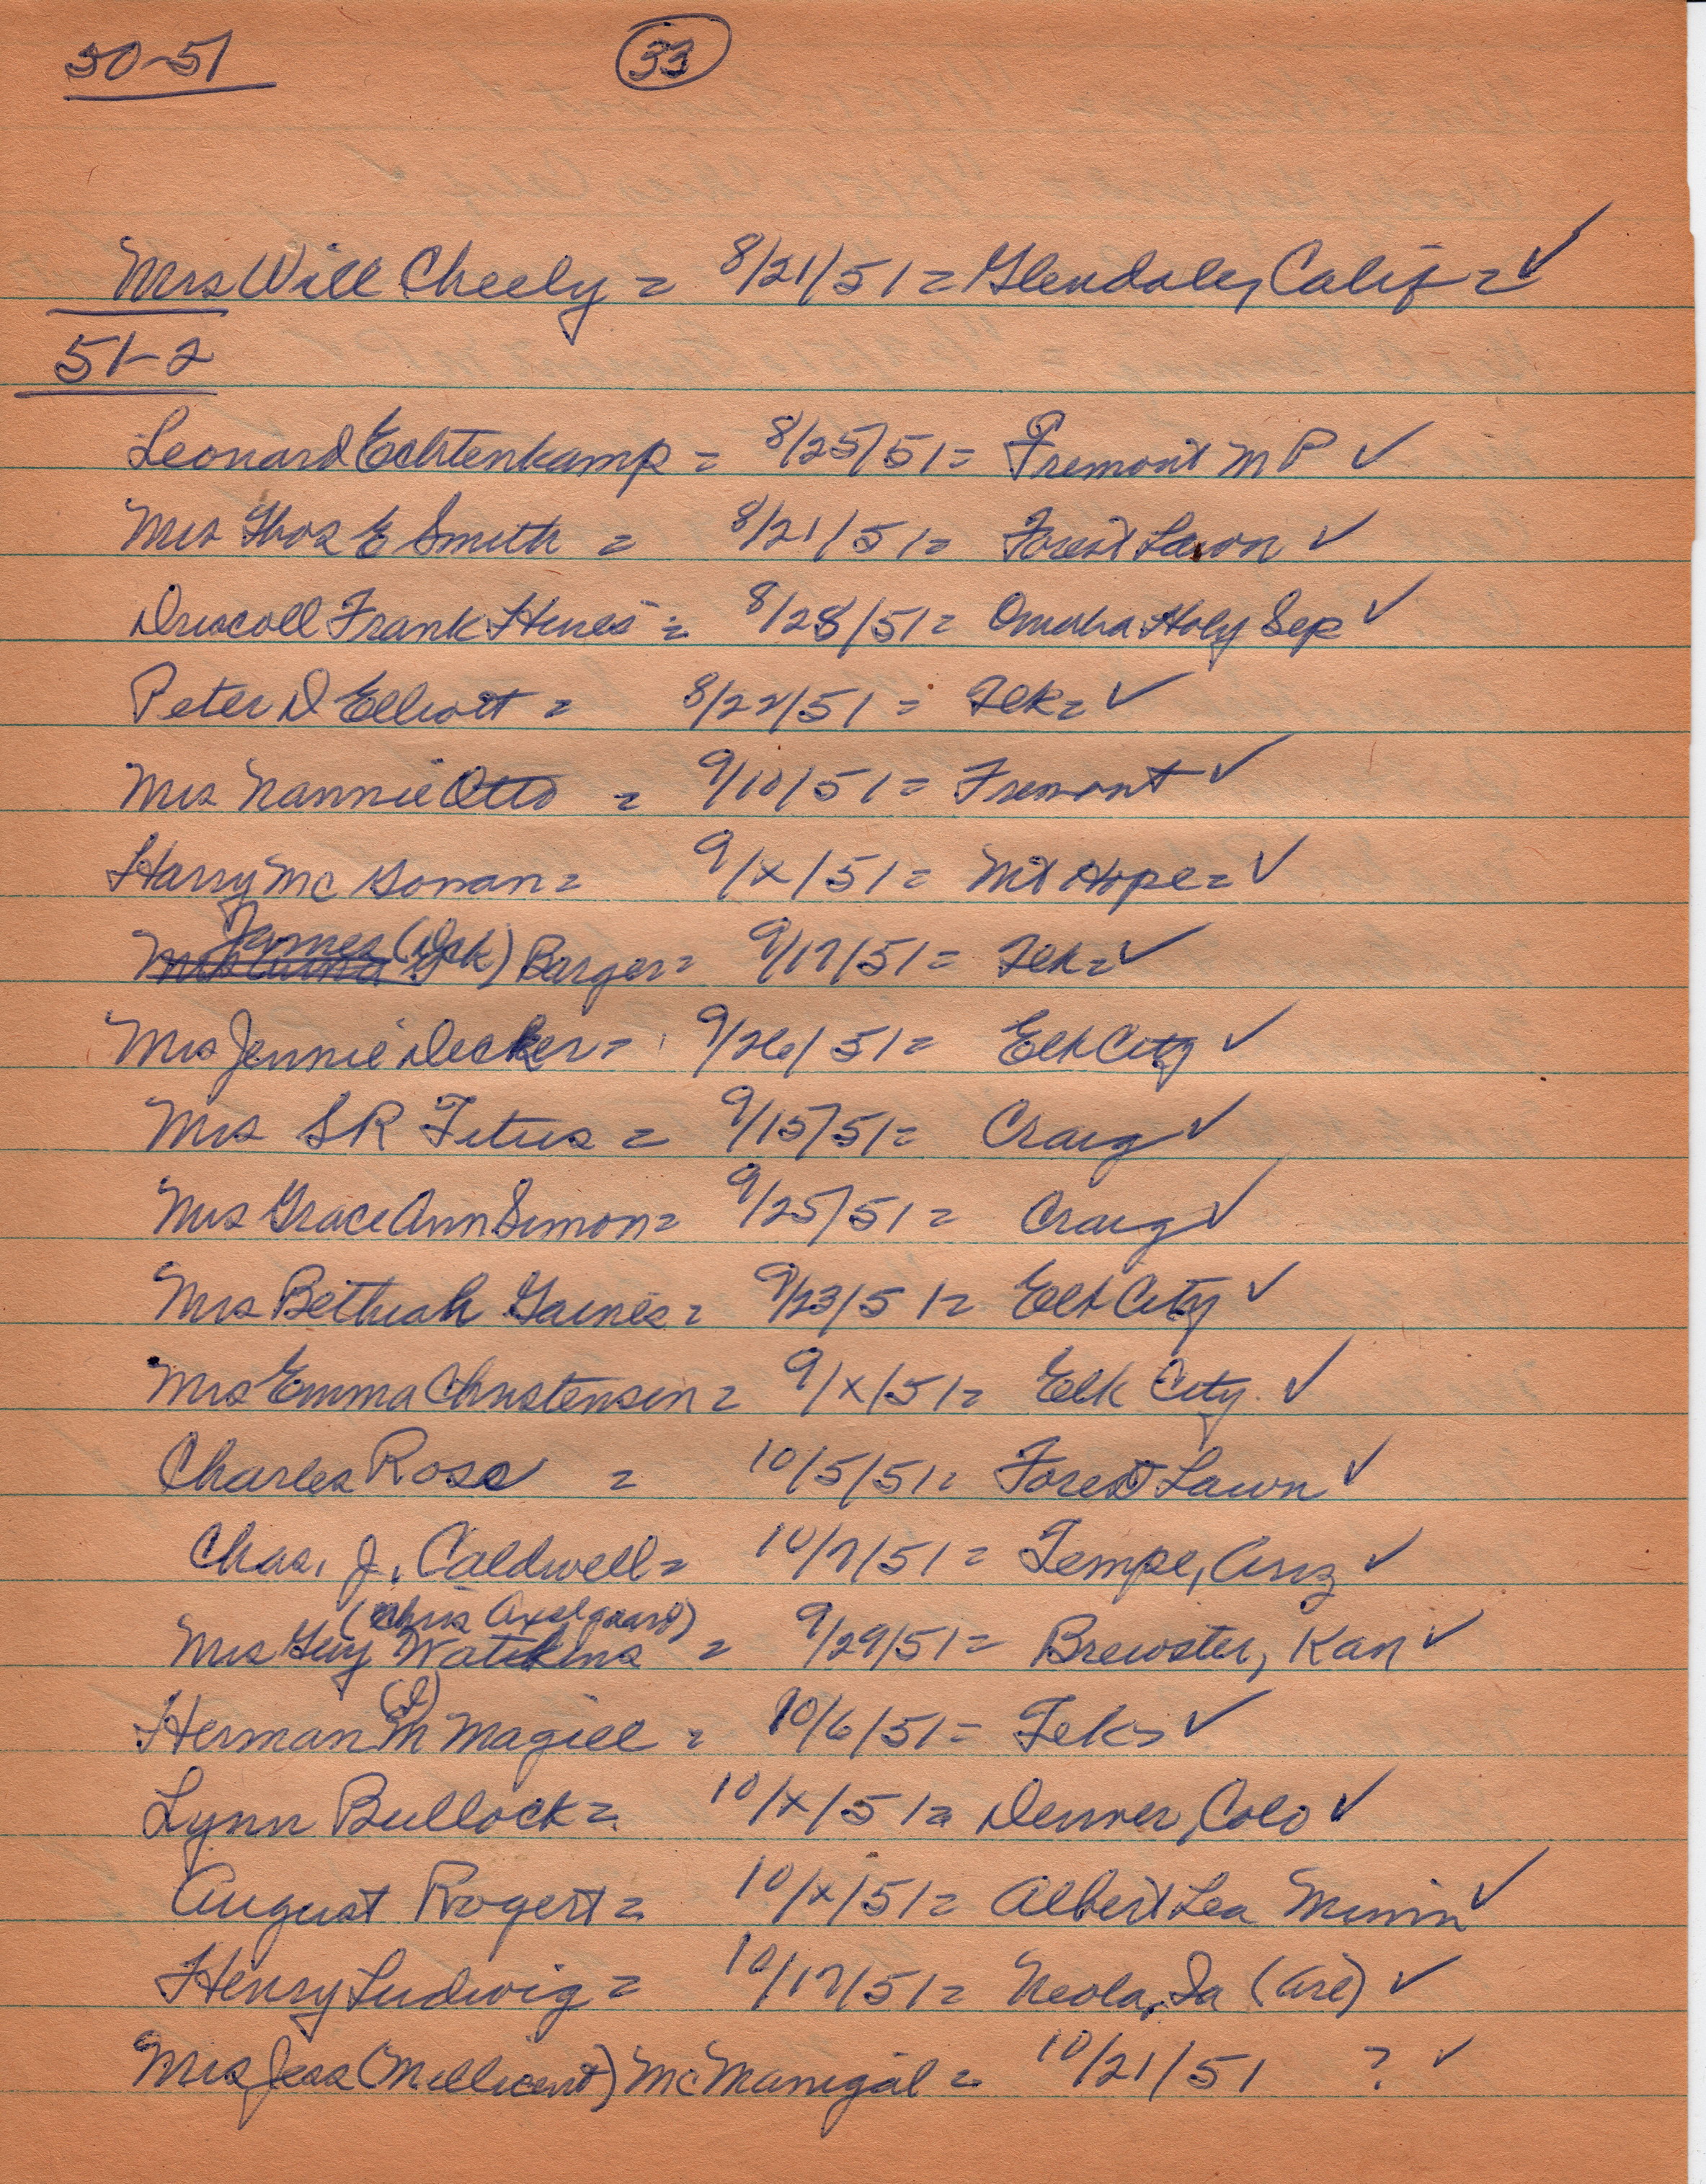 50-51 33
Mrs Will Cheely = 8/21/51 = Glendale, Calif = ✓
51-2
Leonard Echtenkamp = 8/25/51 = Fremont M P ✓
Mrs Thos E Smith = 8/21/51 = Forest Lawn ✓
Driscoll Frank Hines = 8/28/51 = Omaha Holy Sep ✓
Peter D Elliott = 8/22/51 = Tek = ✓
Mrs Nannie Otto = 9/10/51 = Fremont ✓
Harry Mc Gowan = 9/x/51 = Mt Hope = ✓
James (Dick) Barger = 9/17/51 = Tek = ✓
Mrs Jennie Decker = 9/26/51 = Elk City ✓
Mrs S R Titus = 9/15/51 = Craig ✓
Mrs Grace Ann Simon = 9/25/51 = Craig ✓
Mrs Bethuah Gaines = 9/23/51 = Elk City ✓
Mrs Emma Christensen = 9/x/51 = Elk City ✓
Charles Rose = 10/5/51 = Forest Lawn ✓
Chas. J. Caldwell = 10/7/51 = Tempe, Ariz ✓
(Chris Axelgaard)
Mrs Guy Watkins = 9/29/51 = Brewster, Kan ✓
(L)
Herman M Magill = 10/6/51 = Tek = ✓
Lynn Bullock = 10/x/51 = Denver, Colo ✓
August Rogert = 10/x/51 = Albert Lea Minn ✓
Henry Ludwig = 10/17/51 = Neola, Ia ✓
Mrs Jess (Millicent) McManigal = 10/21/51 ? ✓